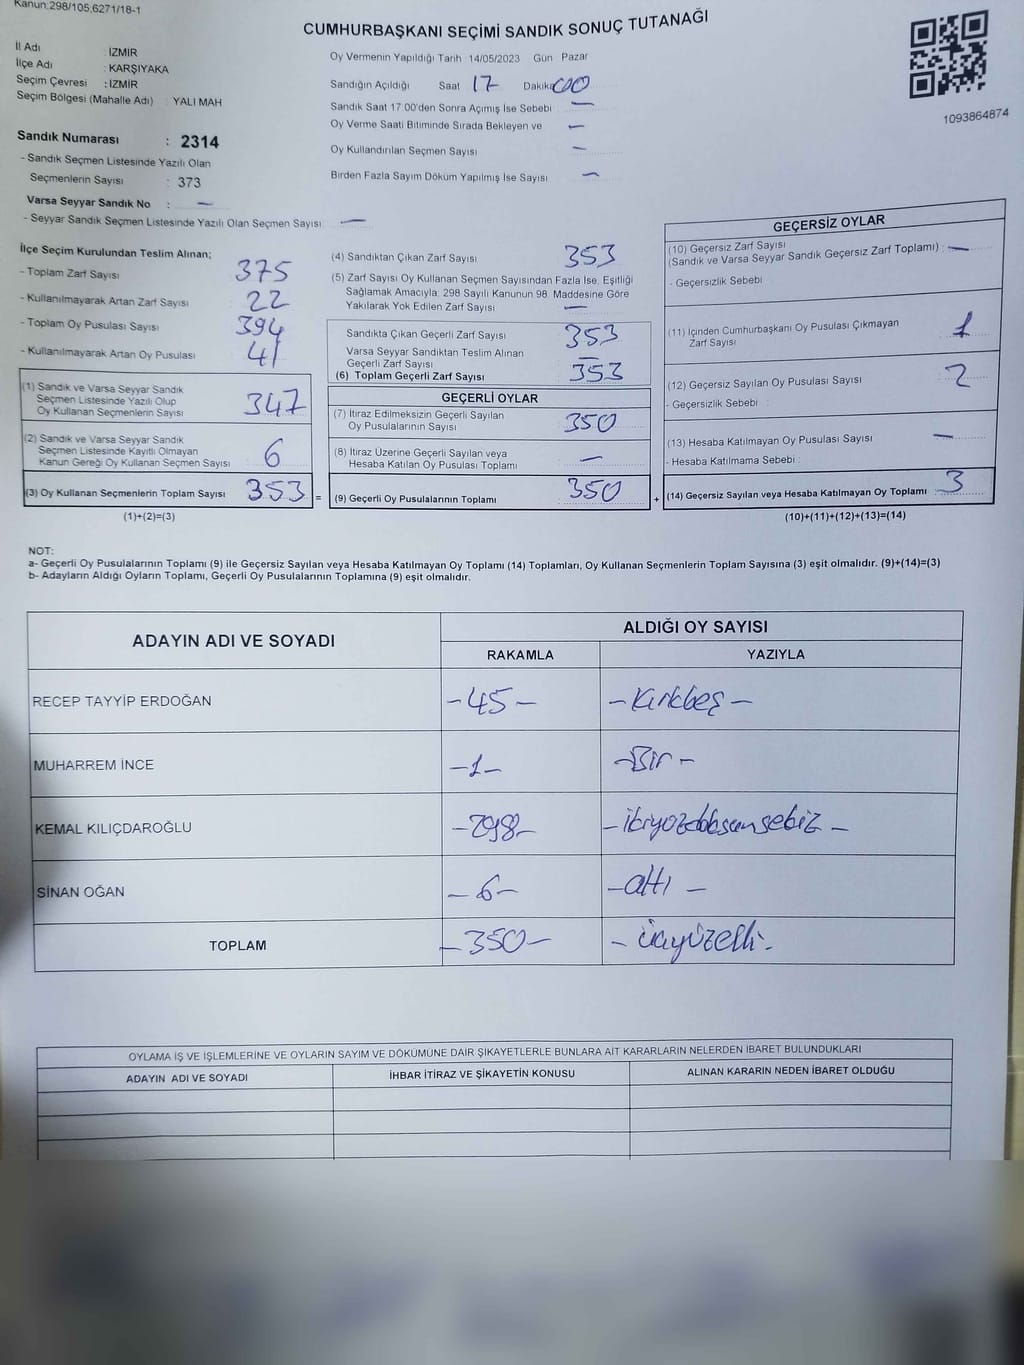 Kanun:298/105,6271/18-1
CUMHURBAŞKANI SEÇİMİ SANDIK SONUÇ TUTANAĞI
İl Adı : İZMİR
İlçe Adı : KARŞIYAKA
Seçim Çevresi : İZMİR
Seçim Bölgesi (Mahalle Adı) YALI MAH
Sandık Numarası : 2314
- Sandık Seçmen Listesinde Yazılı Olan
Seçmenlerin Sayısı : 373
Varsa Seyyar Sandık No : —
- Seyyar Sandık Seçmen Listesinde Yazılı Olan Seçmen Sayısı: —
Oy Vermenin Yapıldığı Tarih 14/05/2023 Gün Pazar
Sandığın Açıldığı Saat 17 Dakika 00
Sandık Saat 17:00'den Sonra Açımış İse Sebebi —
Oy Verme Saati Bitiminde Sırada Bekleyen ve —
Oy Kullandırılan Seçmen Sayısı —
Birden Fazla Sayım Döküm Yapılmış İse Sayısı —
1093864874
İlçe Seçim Kurulundan Teslim Alınan;
- Toplam Zarf Sayısı 375
- Kullanılmayarak Artan Zarf Sayısı 22
- Toplam Oy Pusulası Sayısı 394
- Kullanılmayarak Artan Oy Pusulası 41
(1) Sandık ve Varsa Seyyar Sandık
Seçmen Listesinde Yazılı Olup
Oy Kullanan Seçmenlerin Sayısı 347
(2) Sandık ve Varsa Seyyar Sandık
Seçmen Listesinde Kayıtlı Olmayan
Kanun Gereği Oy Kullanan Seçmen Sayısı 6
(3) Oy Kullanan Seçmenlerin Toplam Sayısı 353 =
(1)+(2)=(3)
(4) Sandıktan Çıkan Zarf Sayısı 353
(5) Zarf Sayısı Oy Kullanan Seçmen Sayısından Fazla İse, Eşitliği
Sağlamak Amacıyla; 298 Sayılı Kanunun 98. Maddesine Göre
Yakılarak Yok Edilen Zarf Sayısı —
Sandıkta Çıkan Geçerli Zarf Sayısı 353
Varsa Seyyar Sandıktan Teslim Alınan
Geçerli Zarf Sayısı —
(6) Toplam Geçerli Zarf Sayısı 353
GEÇERLİ OYLAR
(7) İtiraz Edilmeksizin Geçerli Sayılan
Oy Pusulalarının Sayısı 350
(8) İtiraz Üzerine Geçerli Sayılan veya
Hesaba Katılan Oy Pusulası Toplamı —
(9) Geçerli Oy Pusulalarının Toplamı 350 +
GEÇERSİZ OYLAR
(10) Geçersiz Zarf Sayısı
(Sandık ve Varsa Seyyar Sandık Geçersiz Zarf Toplamı) : —
- Geçersizlik Sebebi
(11) İçinden Cumhurbaşkanı Oy Pusulası Çıkmayan
Zarf Sayısı 1
(12) Geçersiz Sayılan Oy Pusulası Sayısı 2
- Geçersizlik Sebebi :
(13) Hesaba Katılmayan Oy Pusulası Sayısı —
- Hesaba Katılmama Sebebi :
(14) Geçersiz Sayılan veya Hesaba Katılmayan Oy Toplamı : 3
(10)+(11)+(12)+(13)=(14)
NOT:
a- Geçerli Oy Pusulalarının Toplamı (9) ile Geçersiz Sayılan veya Hesaba Katılmayan Oy Toplamı (14) Toplamları, Oy Kullanan Seçmenlerin Toplam Sayısına (3) eşit olmalıdır. (9)+(14)=(3)
b- Adayların Aldığı Oyların Toplamı, Geçerli Oy Pusulalarının Toplamına (9) eşit olmalıdır.
ADAYIN ADI VE SOYADI ALDIĞI OY SAYISI
RAKAMLA YAZIYLA
RECEP TAYYİP ERDOĞAN -45- -Kırkbeş-
MUHARREM İNCE -1- -Bir-
KEMAL KILIÇDAROĞLU -298- -ikiyüzdoksansekiz-
SİNAN OĞAN -6- -altı-
TOPLAM -350- -üçyüzelli-
OYLAMA İŞ VE İŞLEMLERİNE VE OYLARIN SAYIM VE DÖKÜMÜNE DAİR ŞİKAYETLERLE BUNLARA AİT KARARLARIN NELERDEN İBARET BULUNDUKLARI
ADAYIN ADI VE SOYADI İHBAR İTİRAZ VE ŞİKAYETİN KONUSU ALINAN KARARIN NEDEN İBARET OLDUĞU